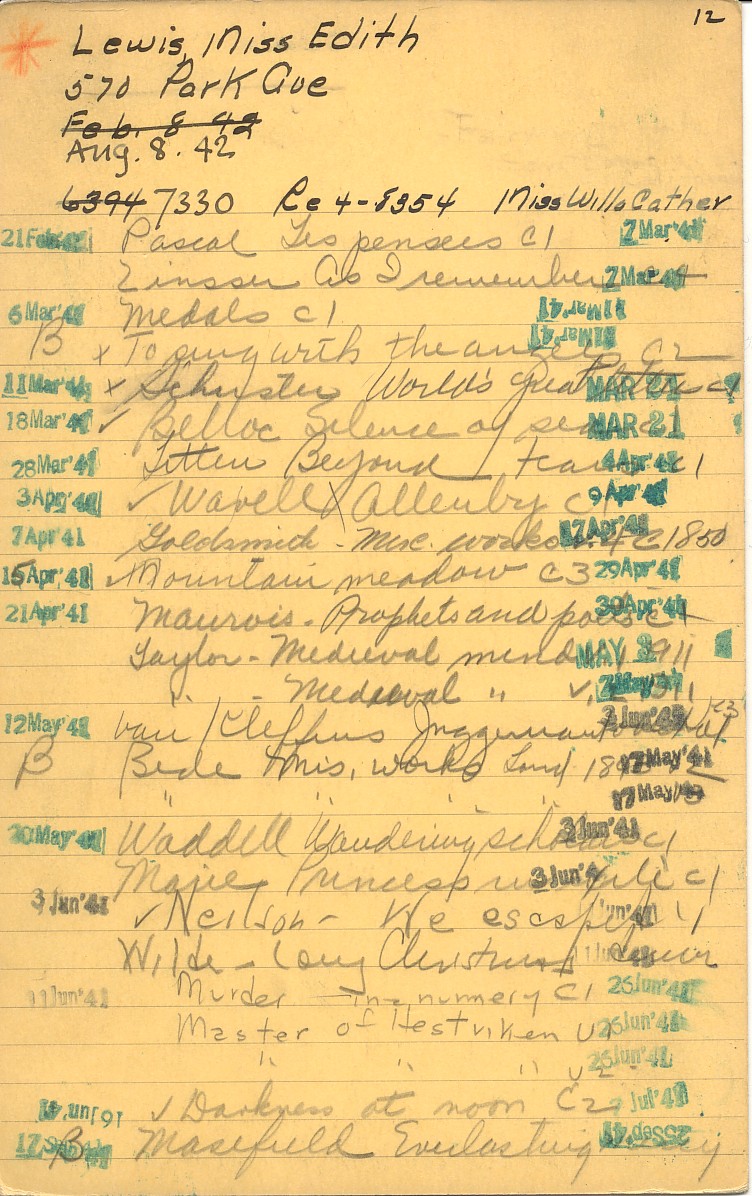 12
Lewis, Miss Edith
570 Park Ave
Feb. 8 42
Aug. 8. 42
6394 7330 Re 4-8354 Miss Willa Cather
21 Feb'41 Pascal Les pensees c1 7 Mar'41
Zinsser As I remember 7 Mar'41
6 Mar'41 Medals c1 11 Mar'41
B x To sing with the angels c2 11 Mar'41
11 Mar'41 x Schuster World's great MAR 21
18 Mar'41 ✓ Belloc Silence of sea MAR 21
28 Mar'41 Litten Beyond tears 4 Apr'41 c1
3 Apr'41 ✓ Wavell Allenby c1 9 Apr'41
7 Apr'41 Goldsmith - Misc. works 17 Apr'41 1850
15 Apr'41 ✓ Mountain meadow c3 29 Apr'41
21 Apr'41 Maurois - Prophets and poets 30 Apr'41
Taylor - Medieval mind MAY 1911
" - Medieval " v.2 1911
12 May'41 van Kleffens Juggernaut 3 Jun'41
B Bede Mis. works Lond 17 May'41
" " " " 17 May
20 May'41 Waddell Wandering scholars 3 Jun'41 c1
Princess 3 Jun'4 c1
3 Jun'41 ✓ Neilson - We escaped
Wilde - Long Christmas 11 Jun
11 Jun'41 Murder in a nunnery C1 26 Jun'41
Master of Hestviken v1 26 Jun'41
" " " v2 26 Jun'41
16 Jun'41 ✓ Darkness at noon C2 Jul'41
17 B Masefield Everlasting 25 Sep'41